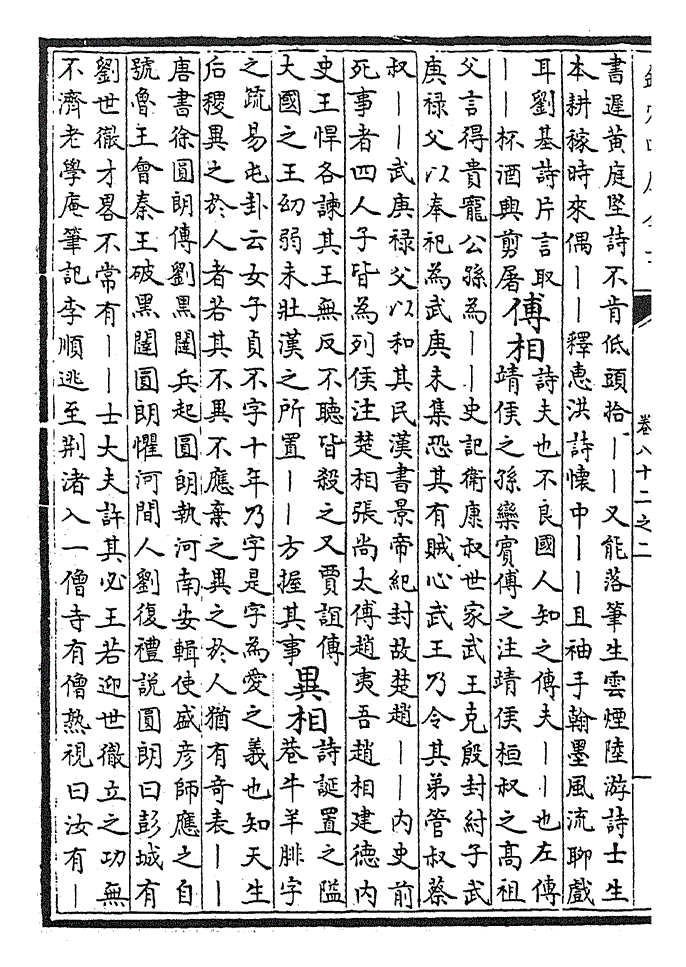 卷八十二之二
書遲黄庭堅詩不肯低頭拾丨丨又能落筆生雲煙陸游詩士生
本耕稼時來偶丨丨釋惠洪詩懷中丨丨且袖手翰墨風流聊戲
耳劉基詩片言取
丨丨杯酒興剪屠
傅相
詩夫也不良國人知之傳夫丨丨也左傳
靖侯之孫欒賓傅之注靖侯桓叔之高祖
父言得貴寵公孫為丨丨史記衛康叔世家武王克殷封紂子武
庚禄父以奉祀為武庚未集恐其有賊心武王乃令其弟管叔蔡
叔丨丨武庚禄父以和其民漢書景帝紀封故楚趙丨丨内史前
死事者四人子皆為列侯注楚相張尚太傅趙夷吾趙相建德内
史王悍各諫其王無反不聽皆殺之又賈誼傳
大國之王幼弱未壯漢之所置丨丨方握其事
異相
詩誕置之隘
巷牛羊腓字
之疏易屯卦云女子貞不字十年乃字是字為愛之義也知天生
后稷異之於人者若其不異不應棄之異之於人猶有奇表丨丨
唐書徐圓朗傳劉黑闥兵起圓朗執河南安輯使盛彦師應之自
號魯王會秦王破黑闥圓朗懼河間人劉復禮說圓朗曰彭城有
劉世徹才畧不常有丨丨士大夫許其必王若迎世徹立之功無
不濟老學庵筆記李順逃至荆渚入一僧寺有僧熟視曰汝有丨